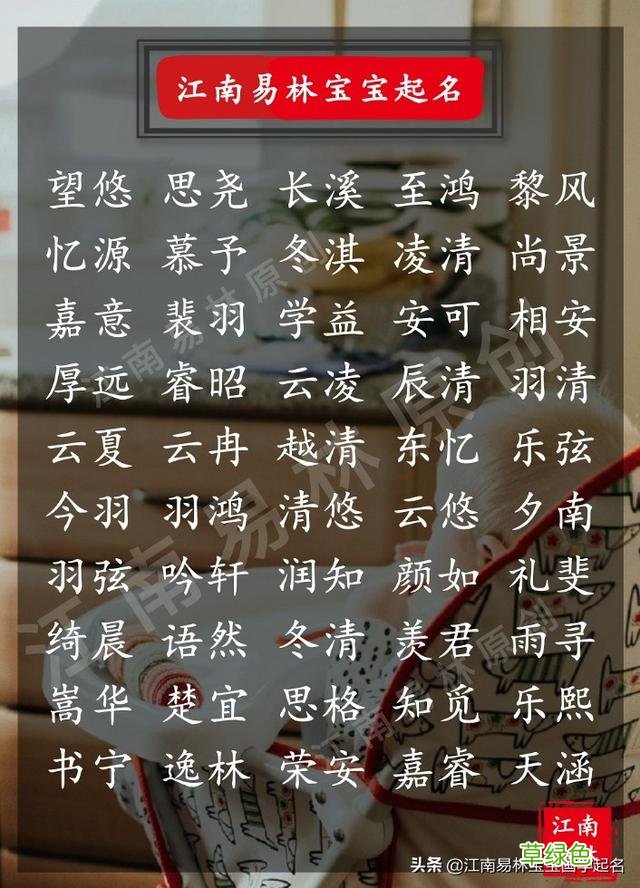 江南易林宝宝起名
望悠 思尧 长溪 至鸿 黎风
忆源 慕予 冬淇 凌清 尚景
嘉意 裴羽 学益 安可 相安
厚远 睿昭 云凌 辰清 羽清
云夏 云冉 越清 东忆 乐弦
今羽 羽鸿 清悠 云悠 夕南
羽弦 吟轩 润知 颜如 礼斐
绮晨 语然 冬清 羡君 雨寻
嵩华 楚宜 思格 知觅 乐熙
书宁 逸林 荣安 嘉睿 天涵
江南易林原创
江南易林原创
江南易林原创
江南
草绿色
头条 @江南易林宝宝国学起名